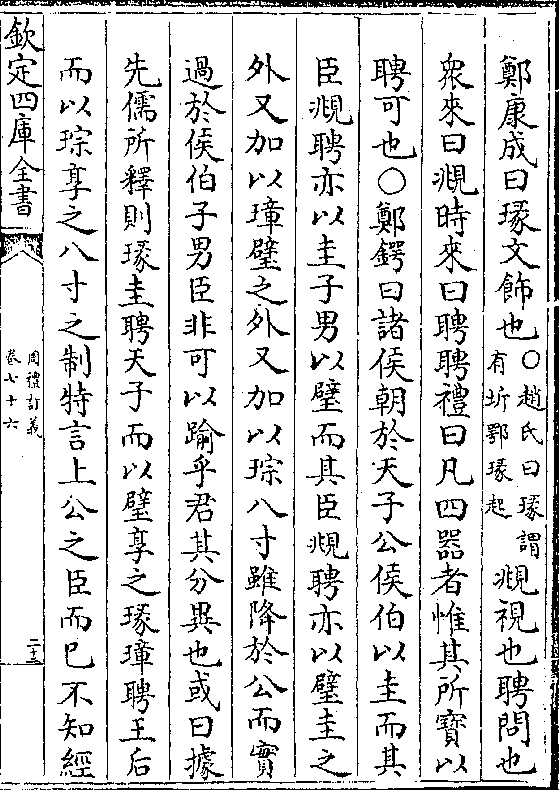 鄭康成曰瑑文飾也○趙氏曰瑑謂有圻鄂瑑起 覜視也聘問也
衆來曰覜時來曰聘聘禮曰凡四器者惟其所寶以
聘可也○鄭鍔曰諸侯朝於天子公侯伯以圭而其
臣覜聘亦以圭子男以璧而其臣覜聘亦以璧圭之
外又加以璋璧之外又加以琮八寸雖降於公而實
過於侯伯子男臣非可以踰乎君其分異也或曰據
先儒所釋則瑑圭聘天子而以璧享之瑑璋聘王后
而以琮享之八寸之制特言上公之臣而已不知經
欽定四庫全書
周禮訂義
卷七十六
二十三